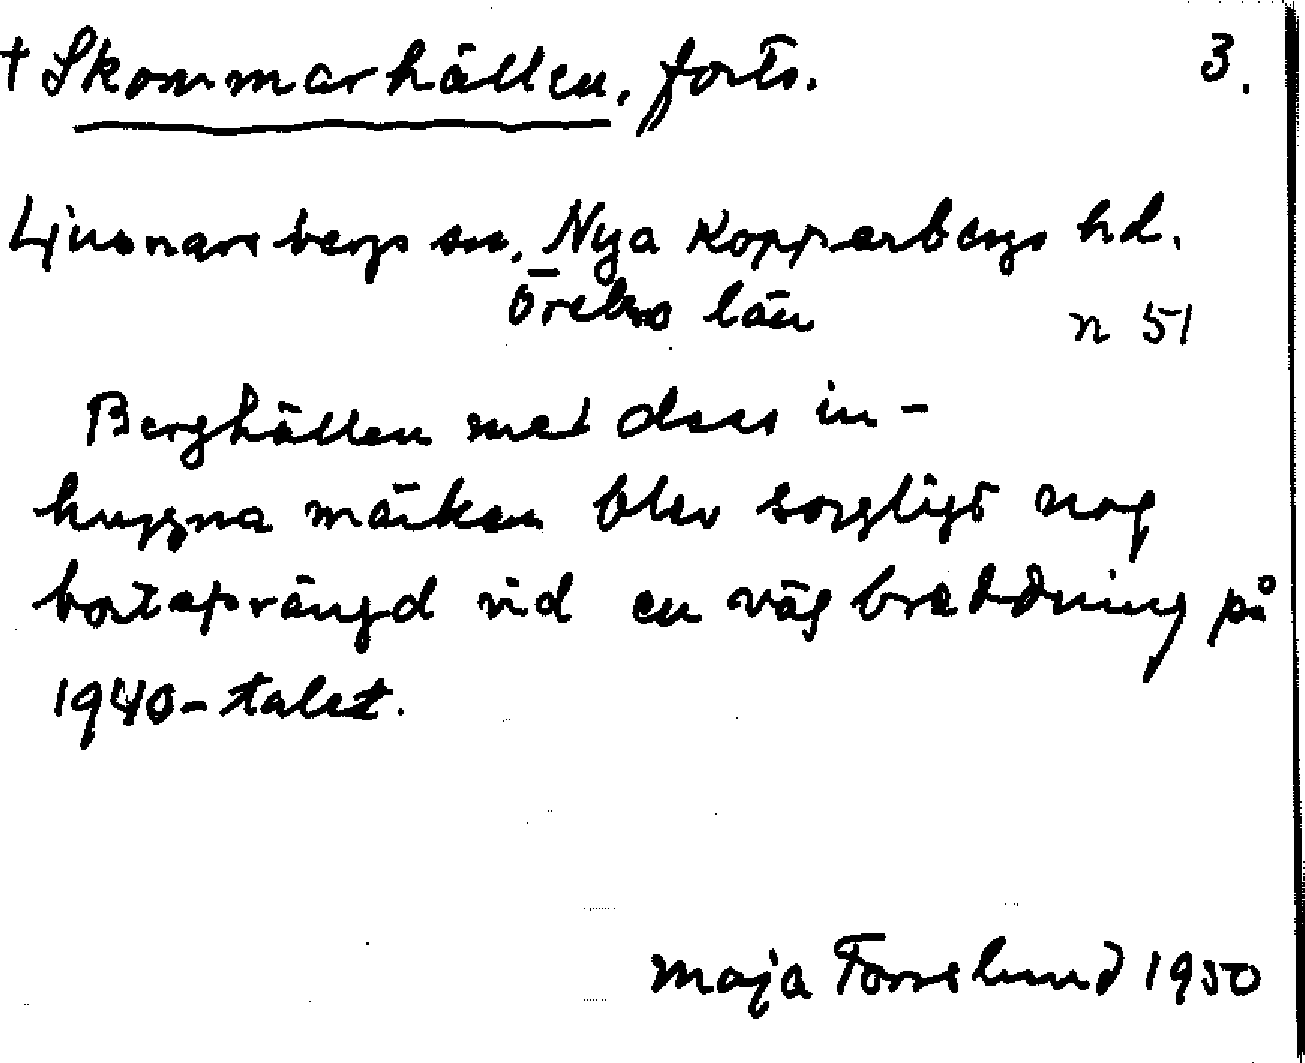 † Skommarhällen, forts. 3.
Ljusnarsbergs sn, Nya Kopparbergs hd.
Örebro län n 51
Berghällen med dess in-
huggna märken blev sorgligt nog
bortsprängd vid en väg breddning på
1940-talet.
Maja Forsslund 1950